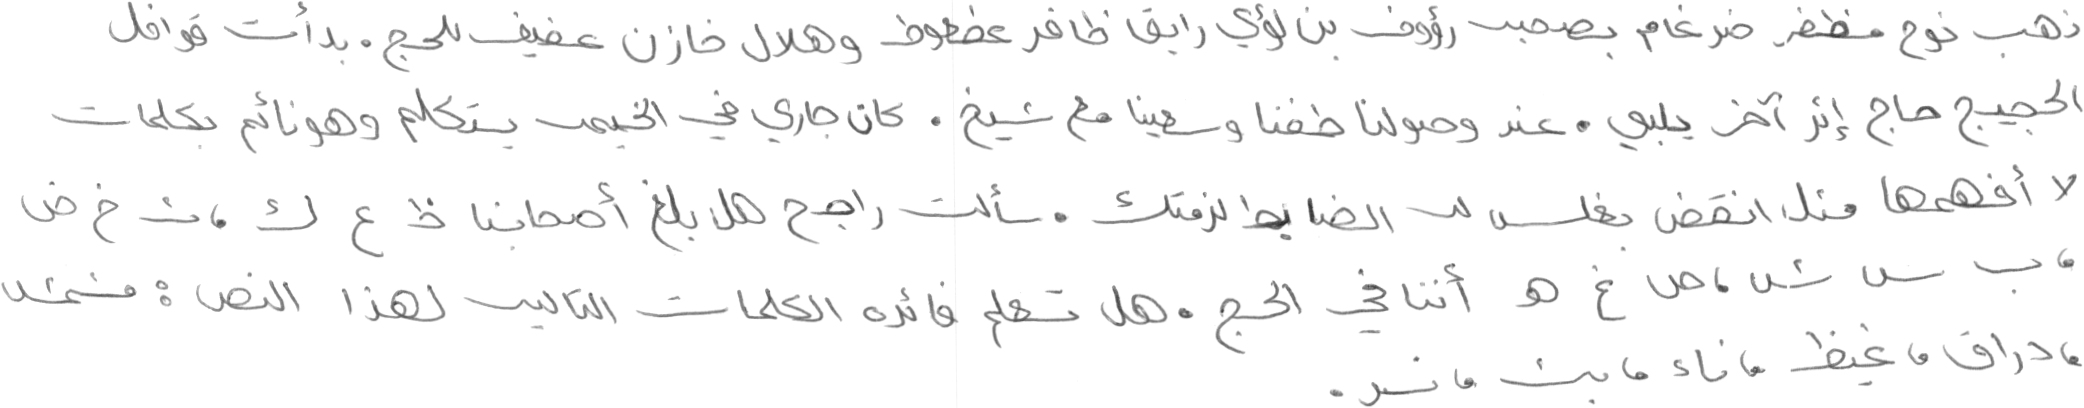 ذهب نوح مظفر ضرغام بصحبة رؤوف بن لؤي رايق ظافر عطعوط وهلال خازن عفيف للحج . بدأت قوافل
الحجيج حاج إثر آخر يلبي . عند وصولنا طفنا وسعينا مع شيخ . كان جاري في الخيمة يتكلم وهو نائم بكلمات
لا أفهمها مثل انقض بغلس لد الضابط لزمتك . سألت راجح هل بلغ أصحابنا ظ ع ك ، ث خ ض
، ب س ش ، ص غ هـ أننا في الحج . هل تعلم فائدة الكلمات التالية لهذا النص : مشمش
، دراق ، غيظ ، ناء ، بث ، نسر .